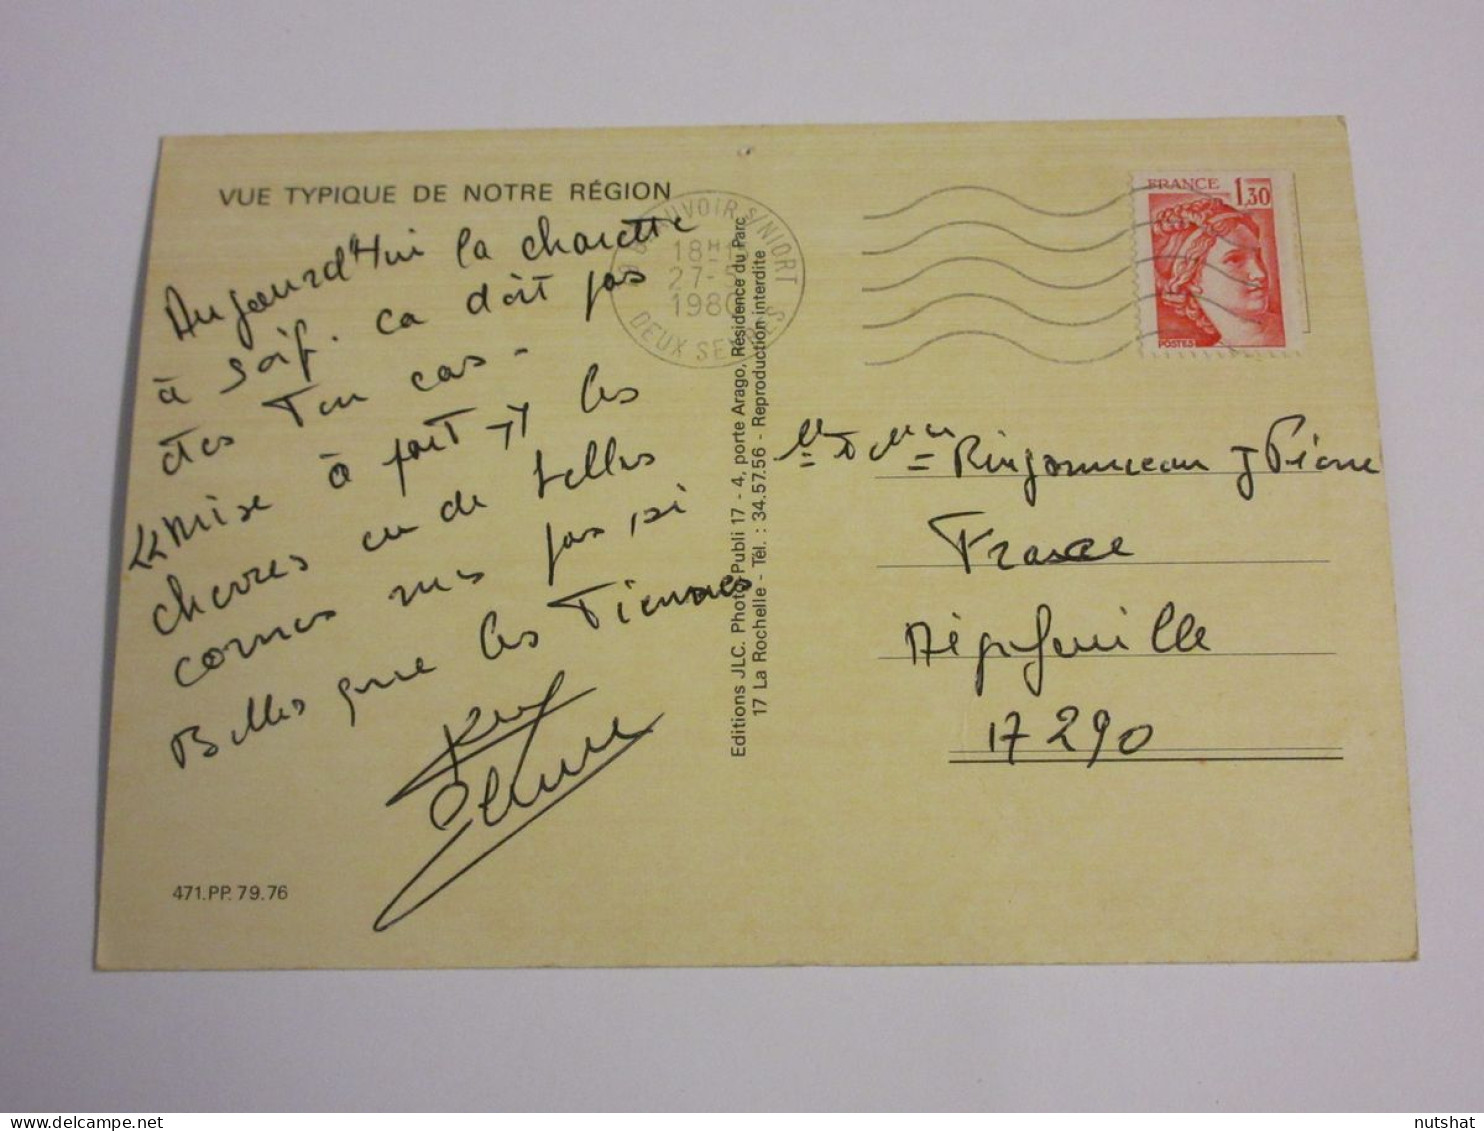 VUE TYPIQUE DE NOTRE RÉGION
Aujourd'Hui la charette
à soif. ca doit pas
êtes Ton cas -
Mise à part les
chevres on de belles
cornes mes pas si
Belles que les Tiennes
471.PP. 79.76
BEAUVOIR S/NIORT
18H
27-
1980
DEUX SEVRES
Editions JLC. Photo Publi 17 - 4, porte Arago, Résidence du Parc
17 La Rochelle - Tél. : 34.57.56 - Reproduction interdite
FRANCE 1,30
POSTES
Pierre
France
Aégrefeuille
17290
nutshat